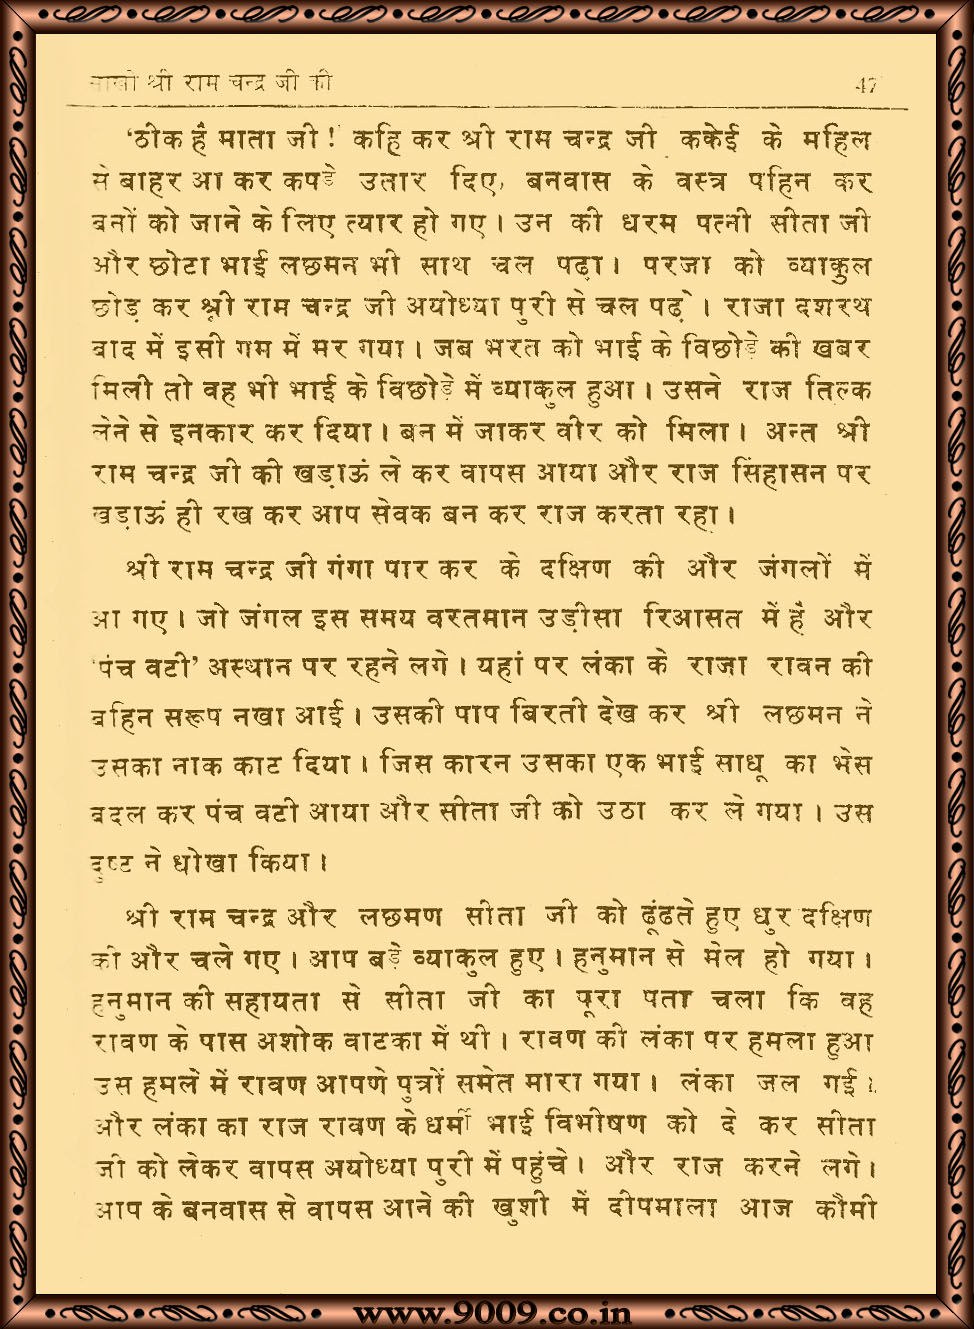 साखी श्री राम चन्द्र जी की 47
‘ठीक हैं माता जी !’ कहि कर श्री राम चन्द्र जी ककेई के महिल
से बाहर आ कर कपड़े उतार दिए, बनवास के वस्त्र पहिन कर
बनों को जाने के लिए त्यार हो गए। उन की धरम पत्नी सीता जी
और छोटा भाई लछमन भी साथ चल पढ़ा। परजा को व्याकुल
छोड़ कर श्री राम चन्द्र जी अयोध्या पुरी से चल पढ़े। राजा दशरथ
बाद में इसी गम में मर गया। जब भरत को भाई के विछोड़े की खबर
मिली तो वह भी भाई के विछोड़े में व्याकुल हुआ। उसने राज तिल्क
लेने से इनकार कर दिया। बन में जाकर वीर को मिला। अन्त श्री
राम चन्द्र जी की खड़ाऊं ले कर वापस आया और राज सिंहासन पर
खड़ाऊं ही रख कर आप सेवक बन कर राज करता रहा।
श्री राम चन्द्र जी गंगा पार कर के दक्षिण की और जंगलों में
आ गए। जो जंगल इस समय वरतमान उड़ीसा रिआसत में हैं और
‘पंच वटी’ अस्थान पर रहने लगे। यहां पर लंका के राजा रावन की
बहिन सरूप नखा आई। उसकी पाप बिरती देख कर श्री लछमन ने
उसका नाक काट दिया। जिस कारन उसका एक भाई साधू का भेस
बदल कर पंच वटी आया और सीता जी को उठा कर ले गया। उस
दुष्ट ने धोखा किया।
श्री राम चन्द्र और लछमण सीता जी को ढूंढते हुए धुर दक्षिण
की और चले गए। आप बड़े व्याकुल हुए। हनुमान से मेल हो गया।
हनुमान की सहायता से सीता जी का पूरा पता चला कि वह
रावण के पास अशोक वाटका में थी। रावण की लंका पर हमला हुआ
उस हमले में रावण आपणे पुत्रों समेत मारा गया। लंका जल गई।
और लंका का राज रावण के धर्मी भाई विभीषण को दे कर सीता
जी को लेकर वापस अयोध्या पुरी में पहुंचे। और राज करने लगे।
आप के बनवास से वापस आने की खुशी में दीपमाला आज कौमी
www.9009.co.in